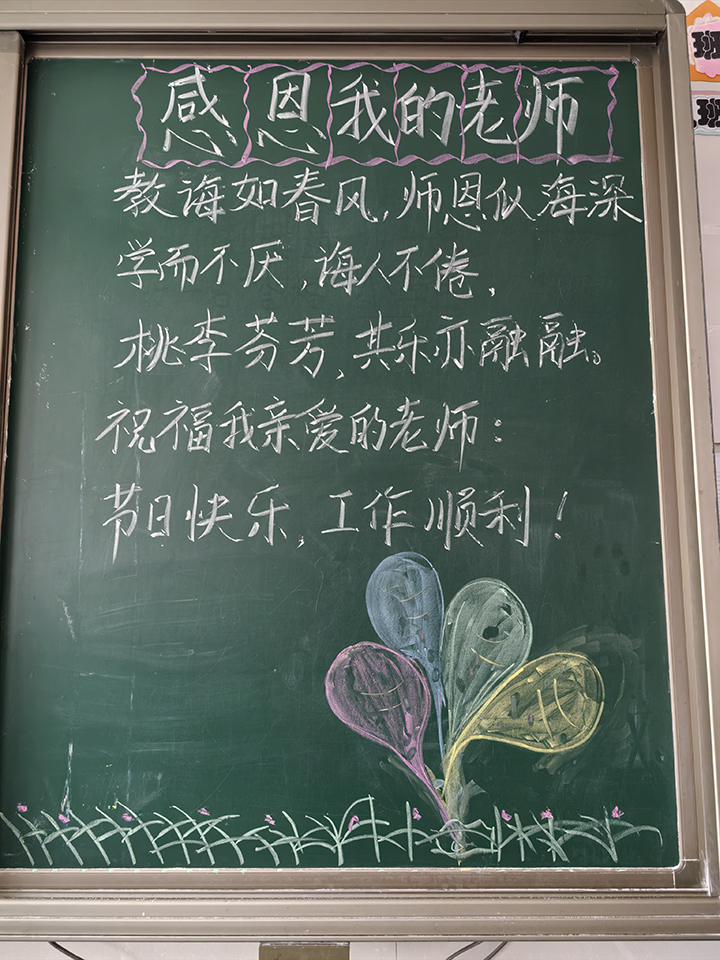 感恩我的老师
教诲如春风,师恩似海深
学而不厌,诲人不倦,
桃李芬芳,其乐亦融融。
祝福我亲爱的老师:
节日快乐,工作顺利!
班
班